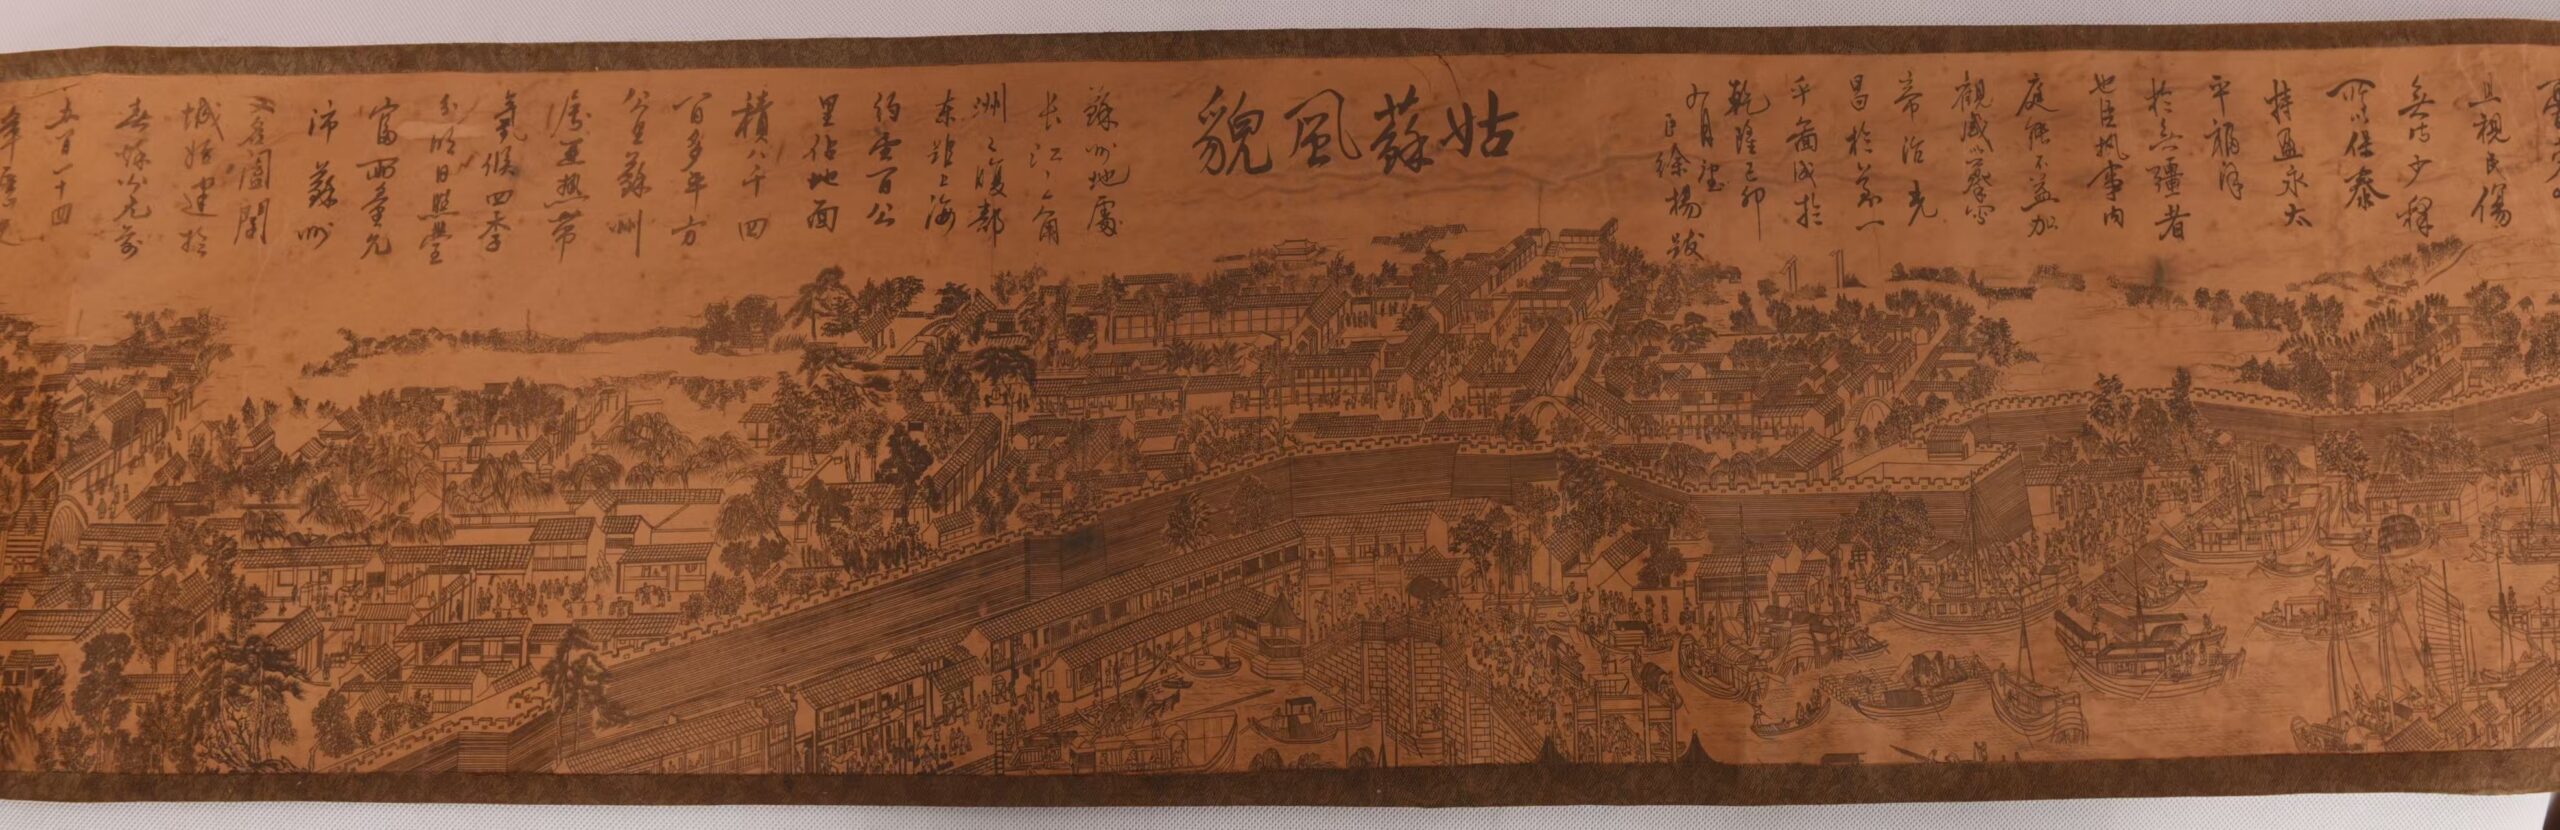 且視民傷
無时少釋
所以保泰
持盈永太
平福澤
於無疆者
也臣執事内
庭能不益加
觀感以摹寫
帝治光
昌於萬一
乎圖成於
乾隆己卯
九月望
臣徐揚跋
姑蘇風貌
蘇州地處
長江三角
洲之腹部
東距上海
約壹百公
里佔地面
積八千四
百多平方
公里蘇州
屬亞熱帶
氣候四季
分明日照豐
富雨量充
沛蘇州
又名闔閭
城始建於
春秋公元前
五百一十四
年歷史